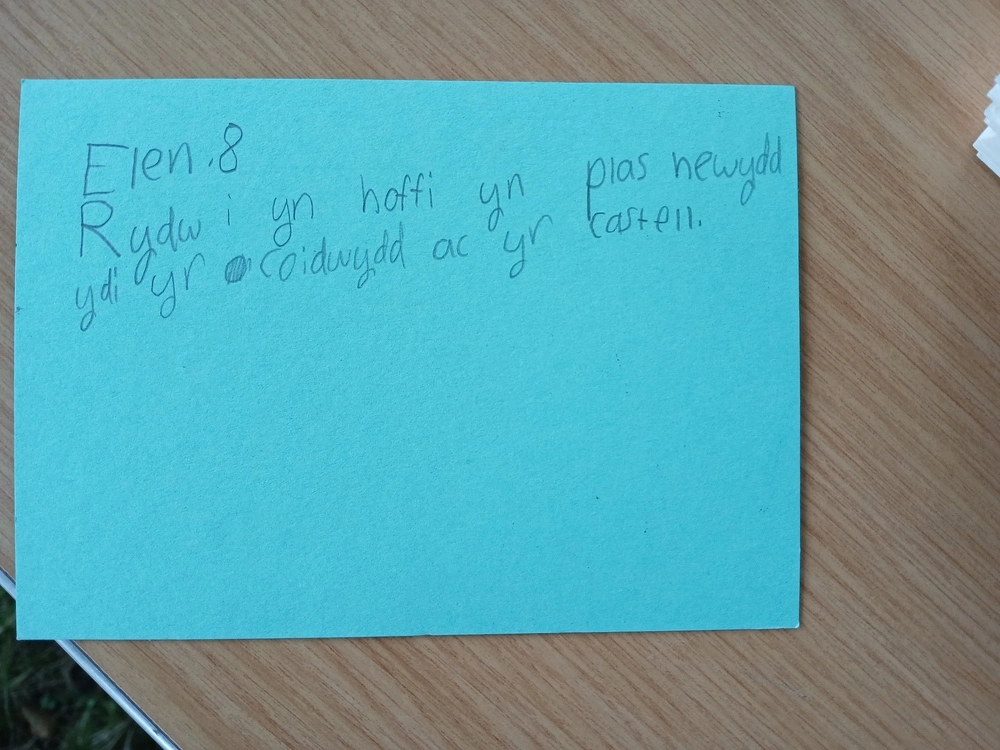 Elen.8
Rydw i yn hoffi yn plas newydd
ydi yr coidwydd ac yr castell.